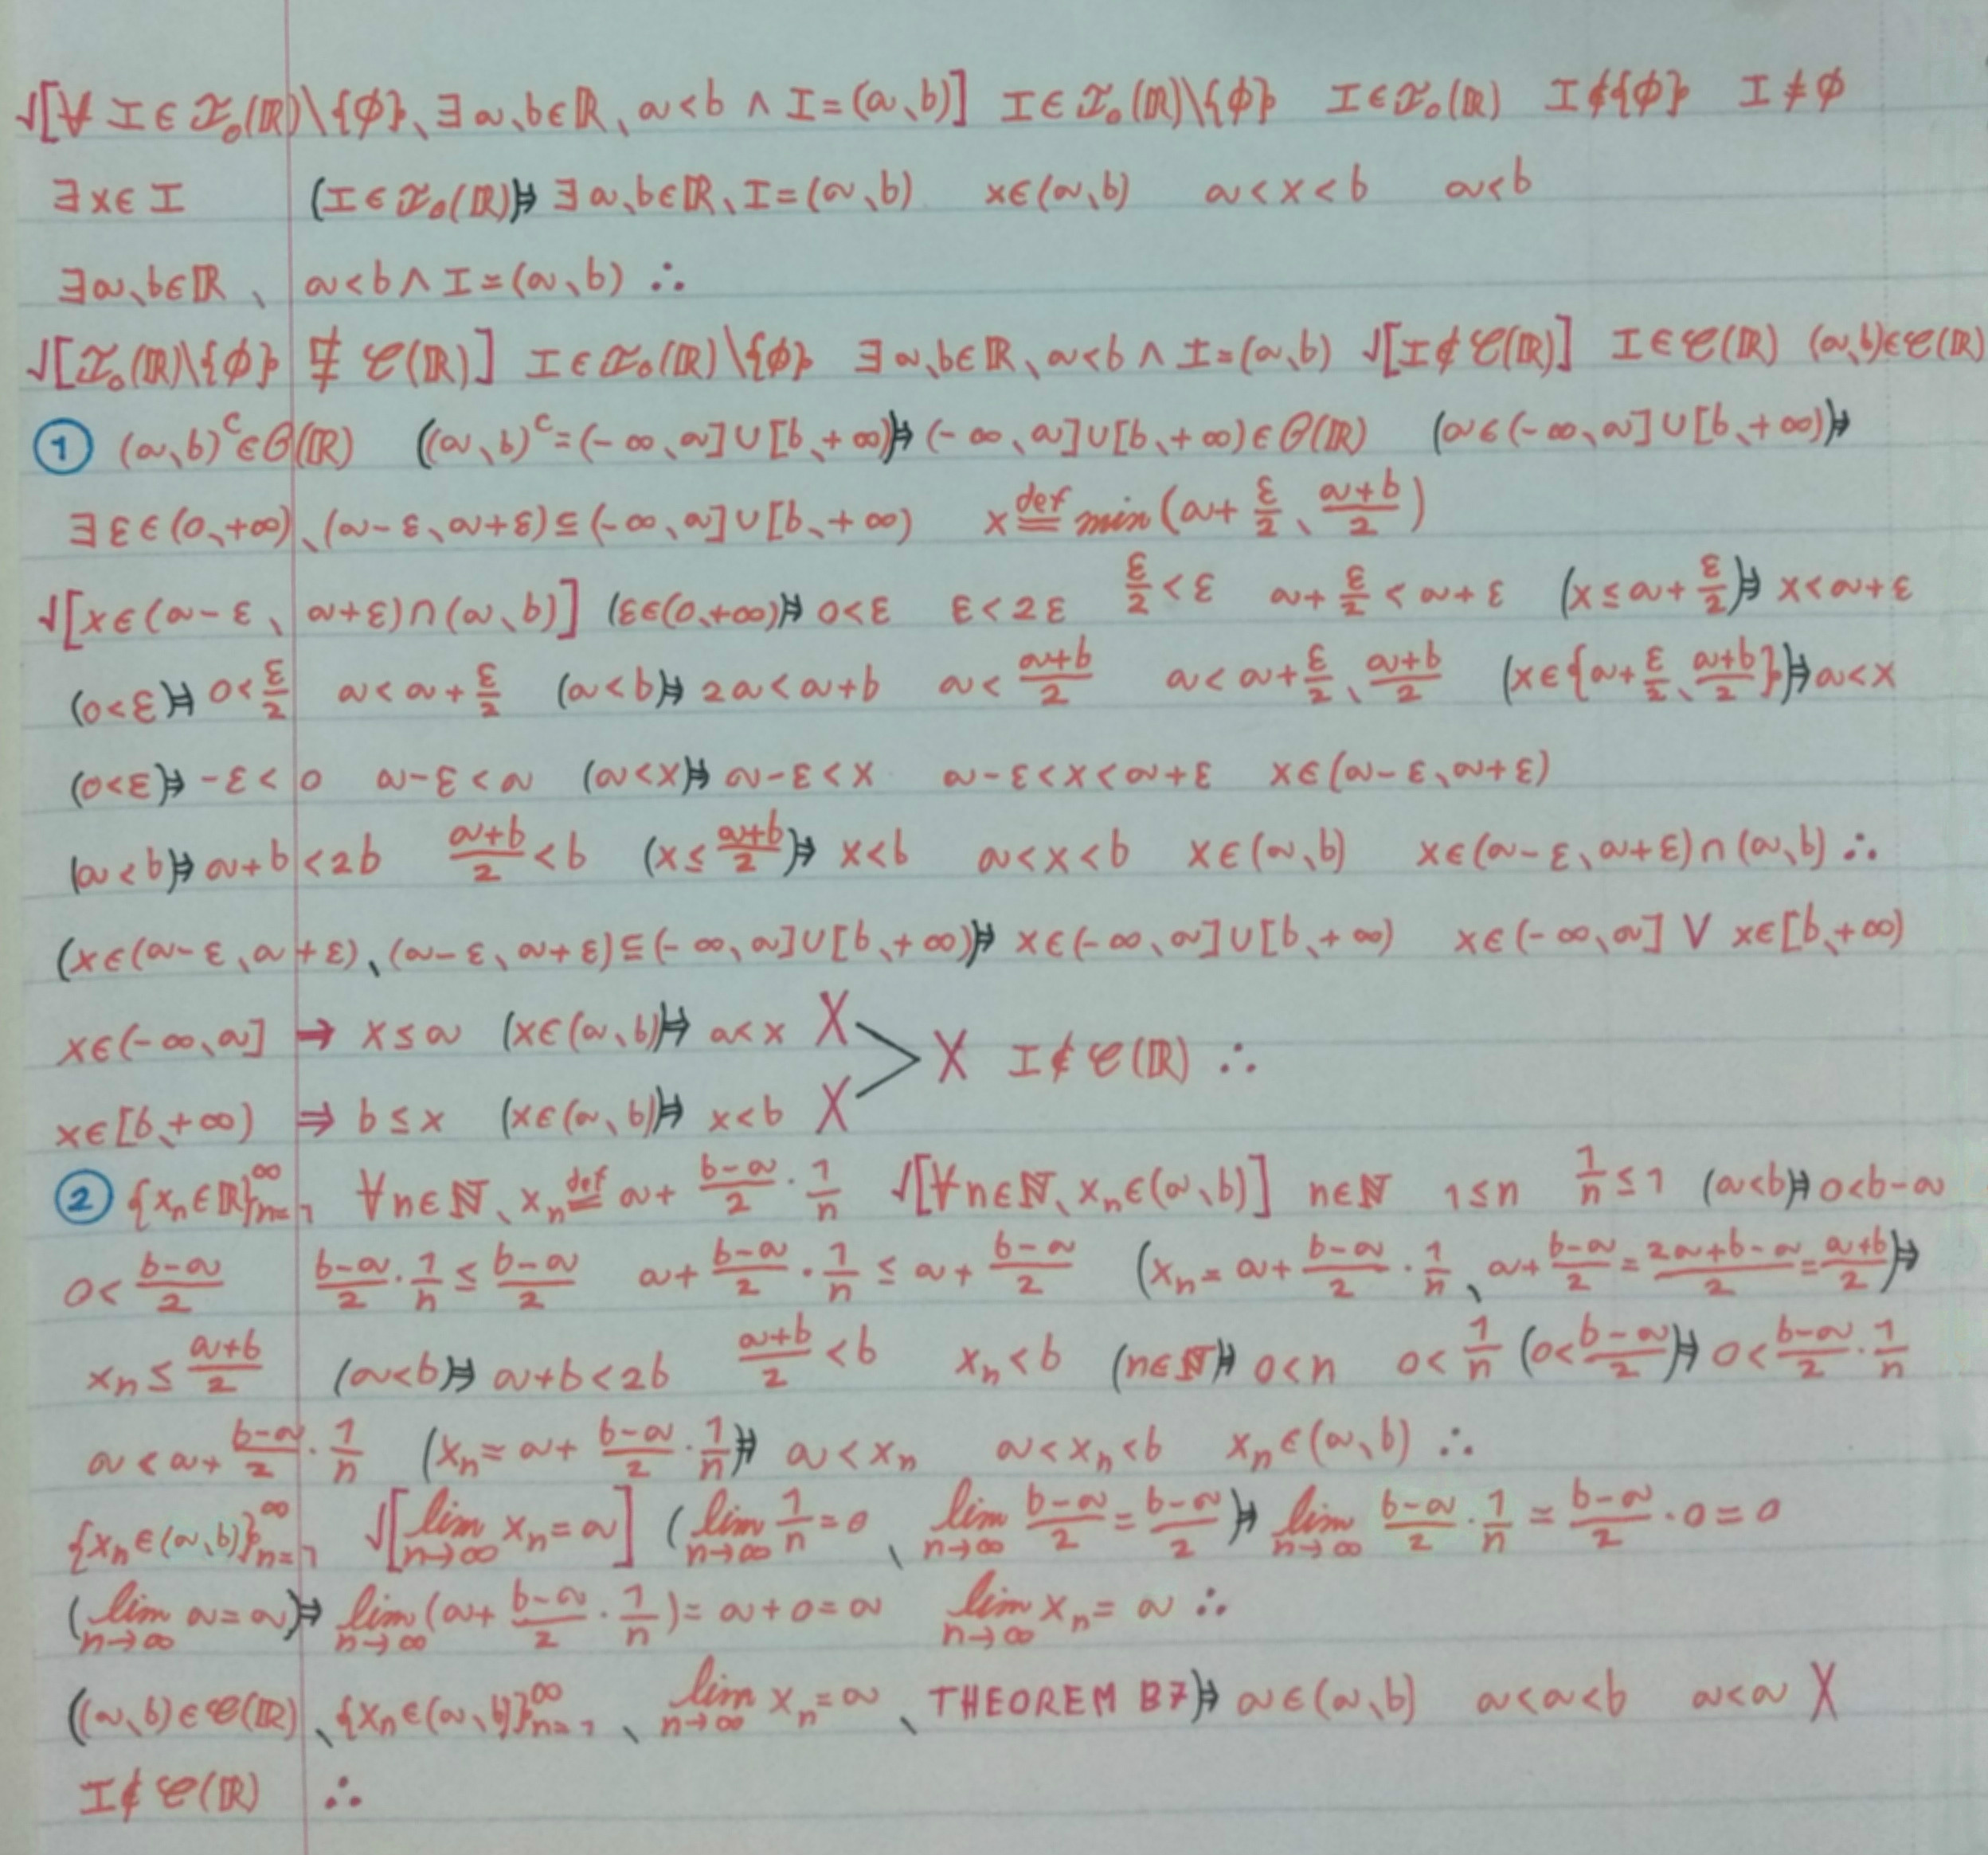 √[∀ I ∈ 𝓘₀(ℝ)\{∅}、∃ a、b∈ℝ、a<b ∧ I=(a、b)] I∈𝓘₀(ℝ)\{∅} I∈𝓘₀(ℝ) I∉{∅} I≠∅
∃x∈I (I∈𝓘₀(ℝ))⇒ ∃a、b∈ℝ、I=(a、b) x∈(a、b) a<x<b a<b
∃a、b∈ℝ、a<b ∧ I=(a、b) ∴
√[𝓘₀(ℝ)\{∅} ⋢ 𝒞(ℝ)] I∈𝓘₀(ℝ)\{∅} ∃a、b∈ℝ、a<b ∧ I=(a、b) √[I∉𝒞(ℝ)] I∈𝒞(ℝ) (a、b)∈𝒞(ℝ)
① (a、b)ᶜ∈Θ(ℝ) ((a、b)ᶜ=(-∞、a]∪[b、+∞))⇒ (-∞、a]∪[b、+∞)∈Θ(ℝ) (a∈(-∞、a]∪[b、+∞))⇒
∃ε∈(0、+∞)、(a-ε、a+ε)⊆(-∞、a]∪[b、+∞) x ≝ min(a+ε/2、(a+b)/2)
√[x∈(a-ε、a+ε)∩(a、b)] (ε∈(0、+∞))⇒ 0<ε ε<2ε ε/2<ε a+ε/2<a+ε (x≤a+ε/2)⇒ x<a+ε
(0<ε)⇒ 0<ε/2 a<a+ε/2 (a<b)⇒ 2a<a+b a<(a+b)/2 a<a+ε/2、(a+b)/2 (x∈{a+ε/2、(a+b)/2})⇒ a<x
(0<ε)⇒ -ε<0 a-ε<a (a<x)⇒ a-ε<x a-ε<x<a+ε x∈(a-ε、a+ε)
(a<b)⇒ a+b<2b (a+b)/2<b (x≤(a+b)/2)⇒ x<b a<x<b x∈(a、b) x∈(a-ε、a+ε)∩(a、b) ∴
(x∈(a-ε、a+ε)、(a-ε、a+ε)⊆(-∞、a]∪[b、+∞))⇒ x∈(-∞、a]∪[b、+∞) x∈(-∞、a] ∨ x∈[b、+∞)
x∈(-∞、a] ⇒ x≤a (x∈(a、b))⇒ a<x X
> X I∉𝒞(ℝ) ∴
x∈[b、+∞) ⇒ b≤x (x∈(a、b))⇒ x<b X
② {xₙ∈ℝ}ₙ₌₁^∞ ∀n∈ℕ、xₙ ≝ a+(b-a)/2·1/n √[∀n∈ℕ、xₙ∈(a、b)] n∈ℕ 1≤n 1/n≤1 (a<b)⇒ 0<b-a
0<(b-a)/2 (b-a)/2·1/n≤(b-a)/2 a+(b-a)/2·1/n≤a+(b-a)/2 (xₙ=a+(b-a)/2·1/n、a+(b-a)/2=(2a+b-a)/2=(a+b)/2)⇒
xₙ≤(a+b)/2 (a<b)⇒ a+b<2b (a+b)/2<b xₙ<b (n∈ℕ)⇒ 0<n 0<1/n (0<(b-a)/2)⇒ 0<(b-a)/2·1/n
a<a+(b-a)/2·1/n (xₙ=a+(b-a)/2·1/n)⇒ a<xₙ a<xₙ<b xₙ∈(a、b) ∴
{xₙ∈(a、b)}ₙ₌₁^∞ √[lim n→∞ xₙ=a] (lim n→∞ 1/n=0、lim n→∞ (b-a)/2=(b-a)/2)⇒ lim n→∞ (b-a)/2·1/n=(b-a)/2·0=0
(lim n→∞ a=a)⇒ lim n→∞ (a+(b-a)/2·1/n)=a+0=a lim n→∞ xₙ=a ∴
((a、b)∈𝒞(ℝ)、{xₙ∈(a、b)}ₙ₌₁^∞、lim n→∞ xₙ=a、THEOREM B7)⇒ a∈(a、b) a<a<b a<a X
I∉𝒞(ℝ) ∴